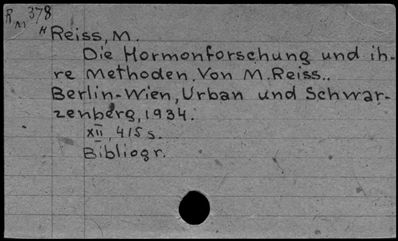 R 378
M
H Reiss, M.
Die Hormonforschung und ih-
re Methoden. Von M. Reiss..
Berlin-Wien, Urban und Schwar-
zenberg, 1934.
XII, 415 s.
Bibliogr.